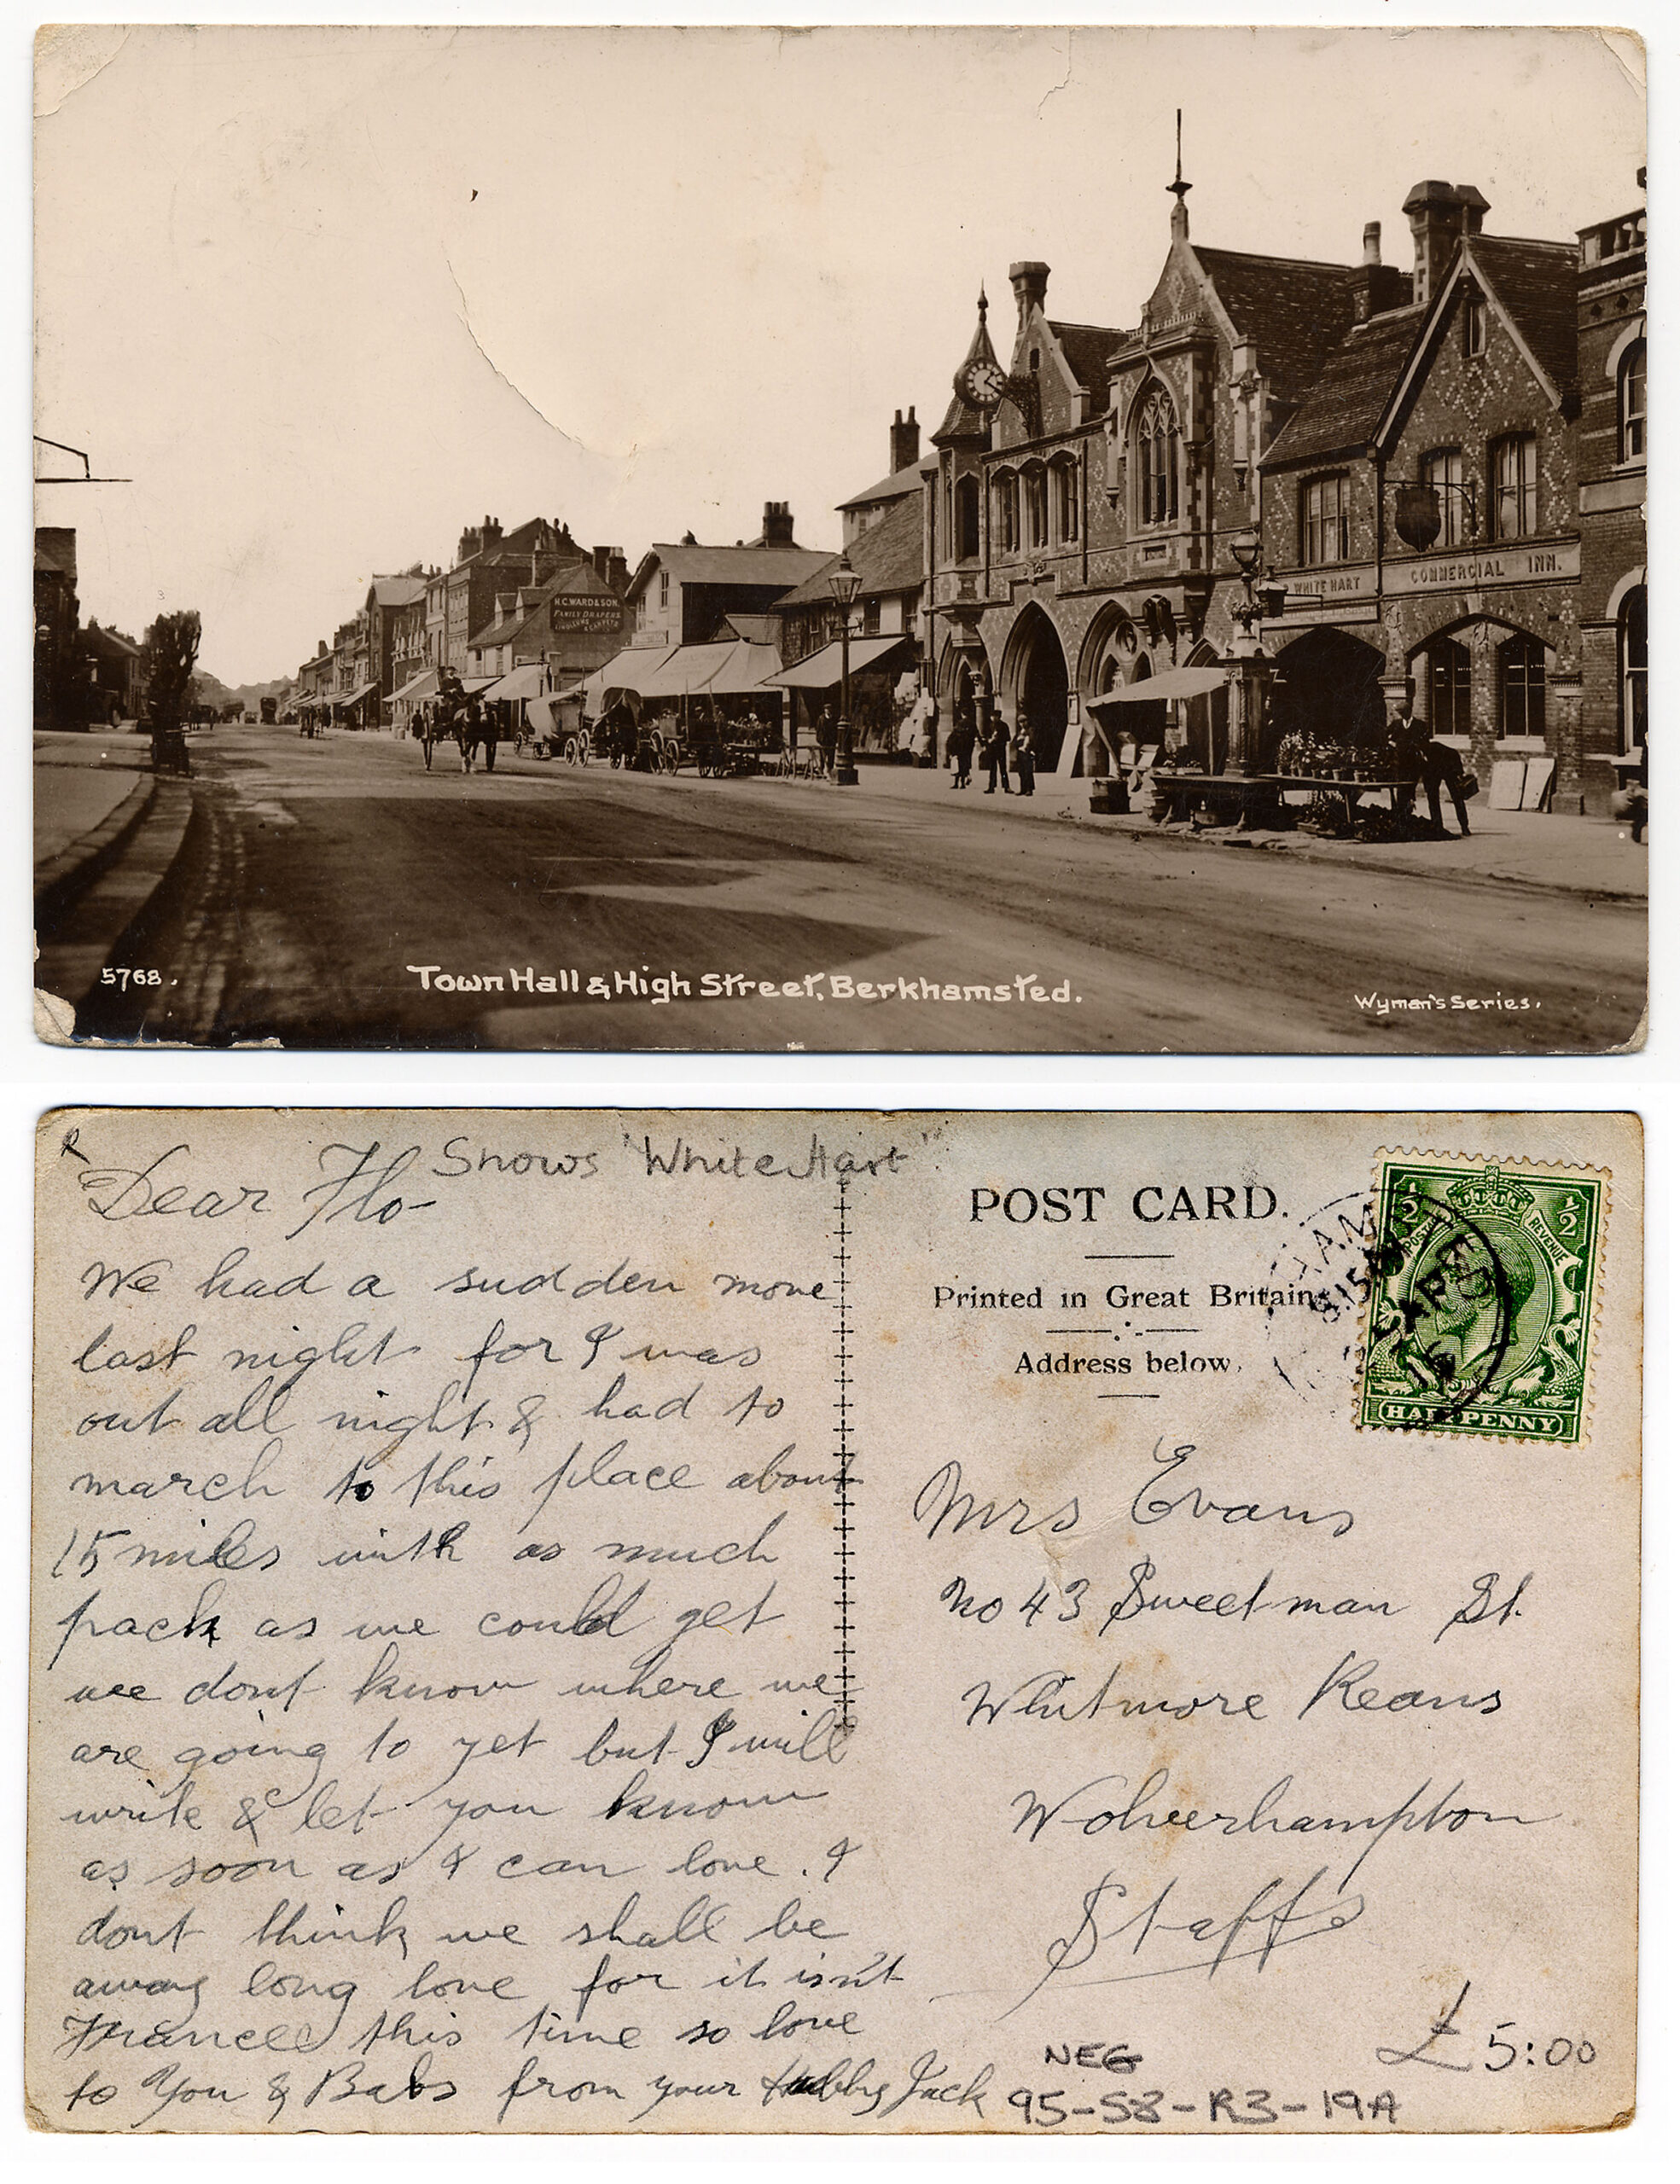 H.C.WARD & SON.
FAMILY DRAPERS.
WHITE HART
COMMERCIAL INN.
5768.
Town Hall & High Street, Berkhamsted.
Wyman's Series.
R
Shows 'White Hart'
Dear Flo
We had a sudden move
last night for I was
out all night & had to
march to this place about
15 miles with as much
pack as we could get
we dont know where we
are going to yet but I will
write & let you know
as soon as I can love. I
dont think we shall be
away long love for it isn't
France this time so love
to You & Babs from your Hubby Jack
POST CARD.
Printed in Great Britain
Address below.
½ ½
POSTAGE REVENUE
HALFPENNY
HAMSTED
AP
16
Mrs Evans
No 43 Sweetman St.
Whitmore Reans
Wolverhampton
Staffs
£5:00
NEG
95-S8-R3-19A